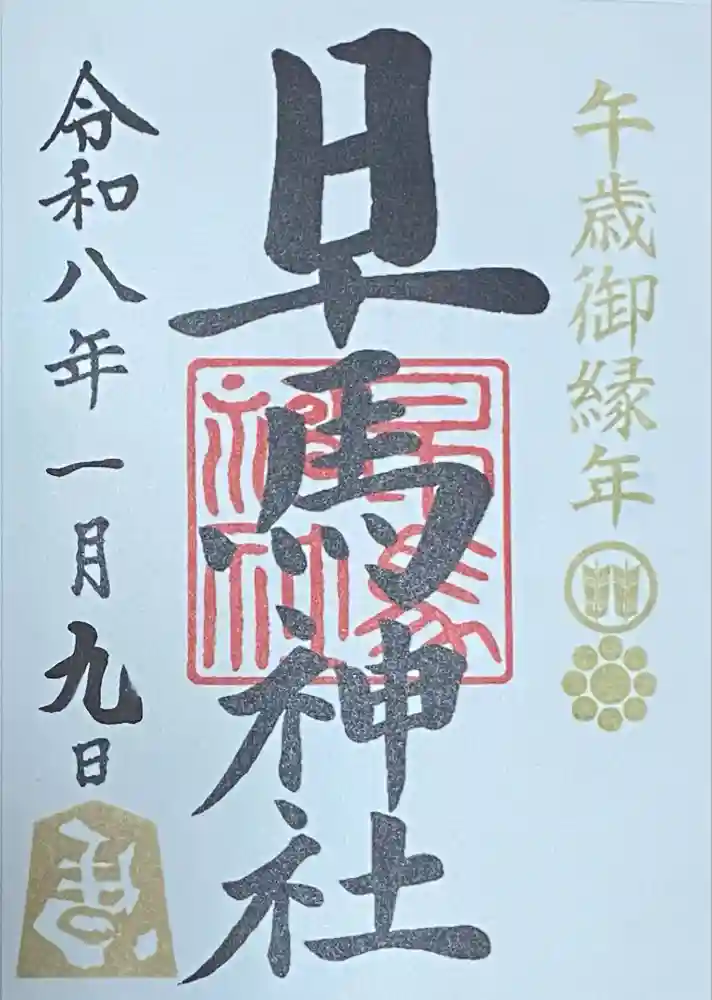 午歳御縁年
早馬神社
早馬神社
令和八年一月九日